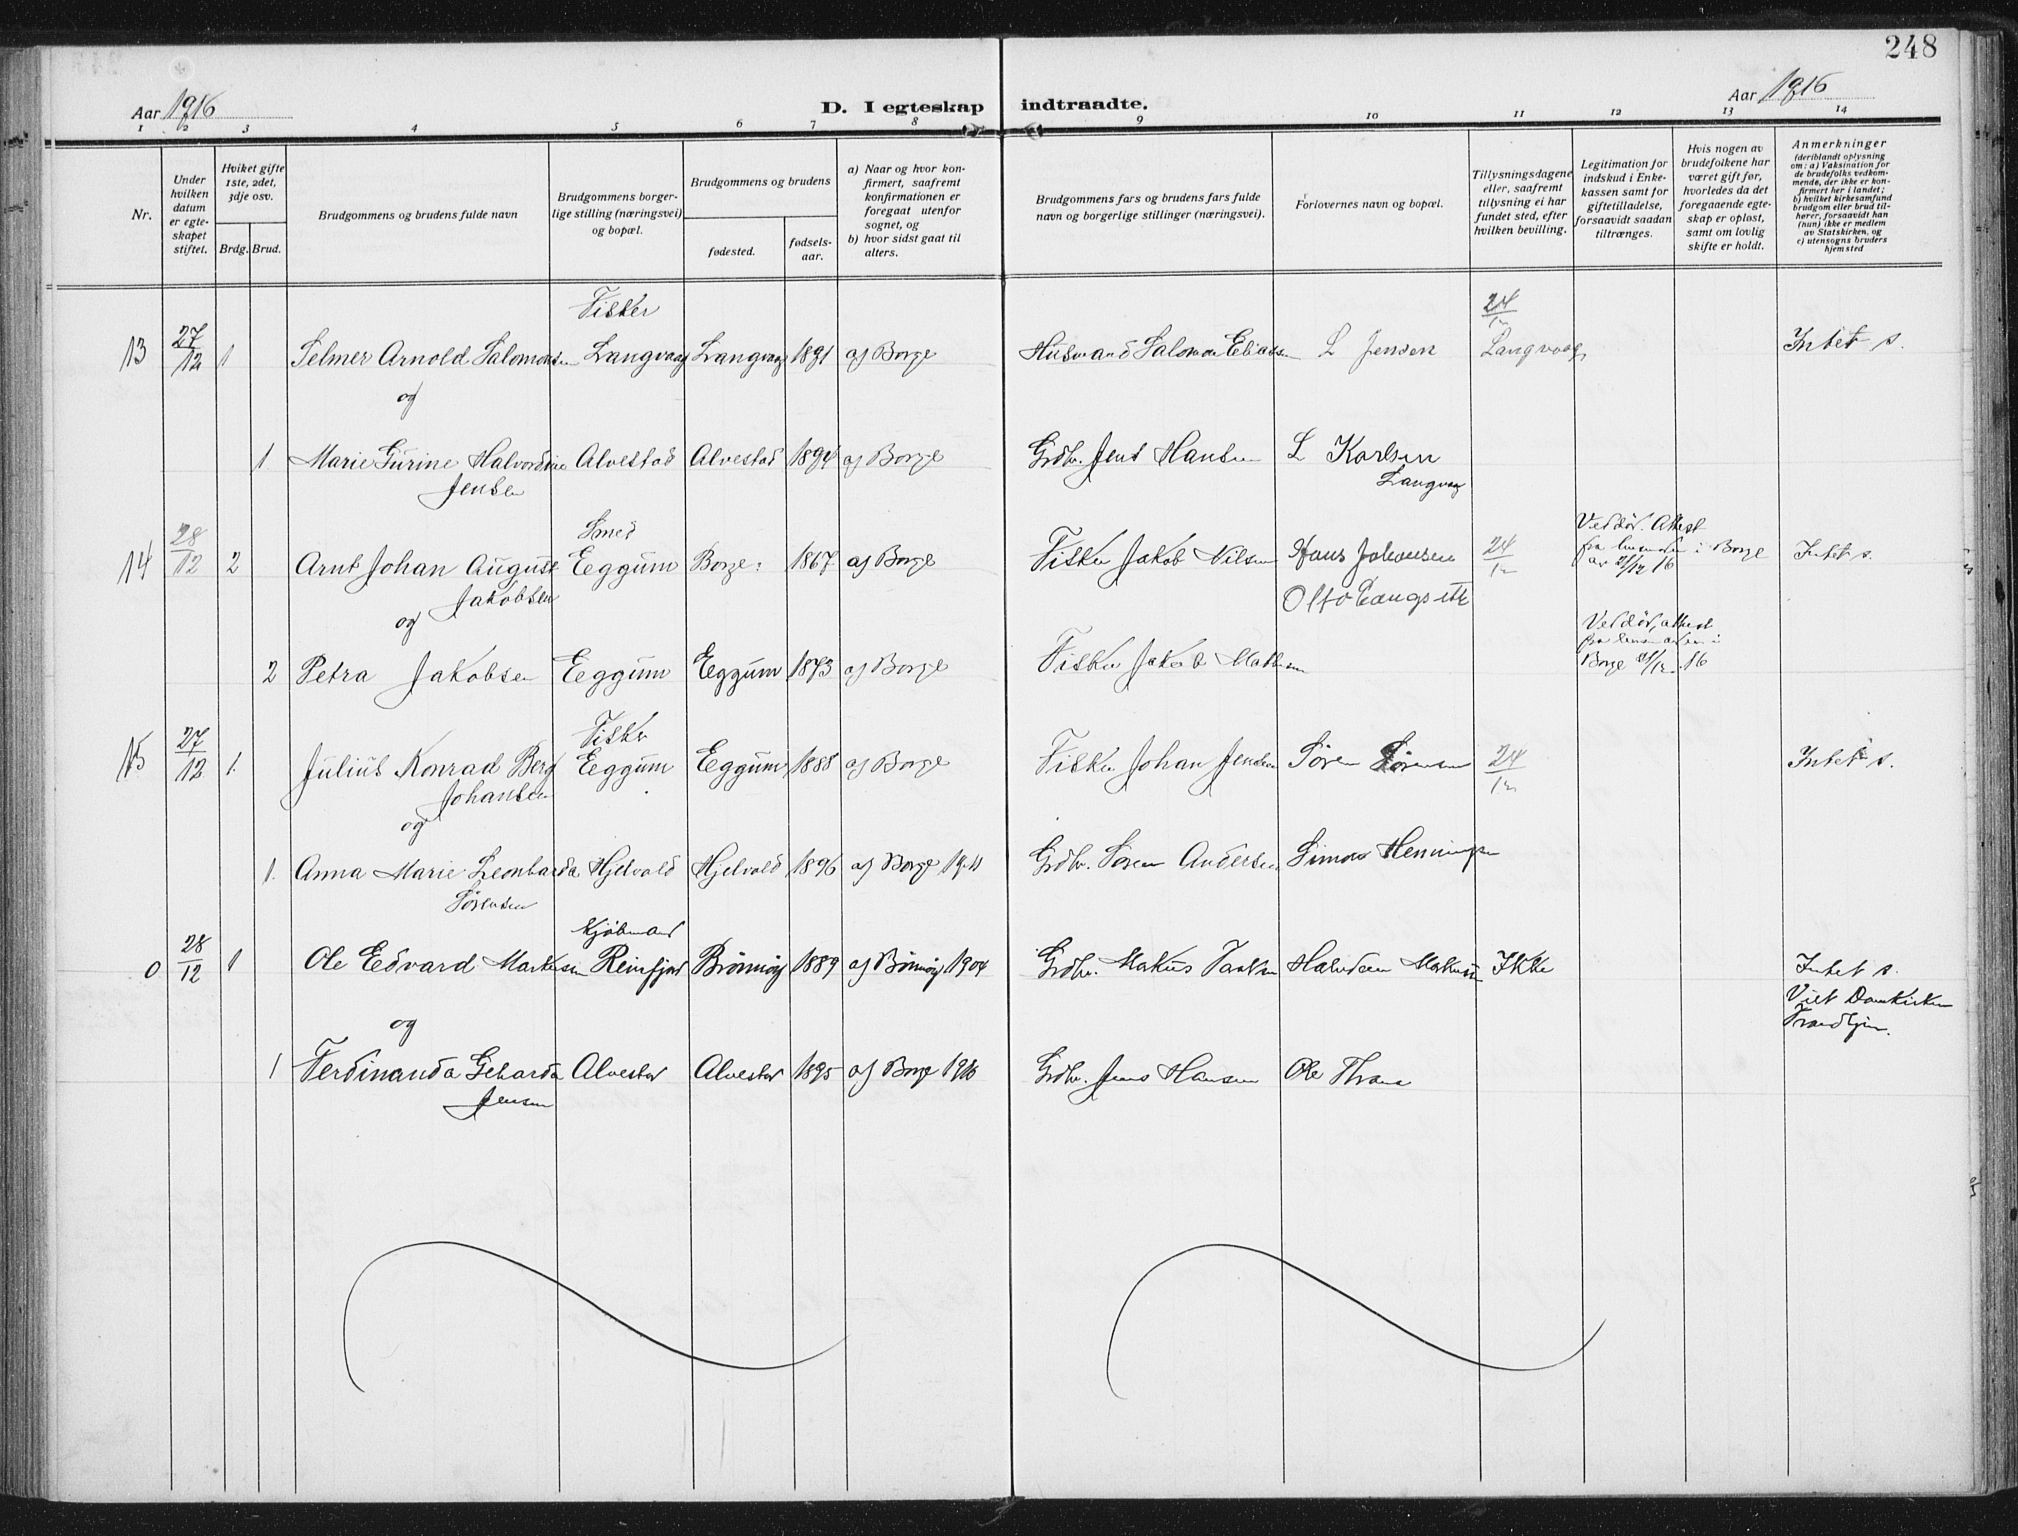 248
Aar 1916
D. I egteskap indtraadte.
Aar 1916
1 2 3 4 5 6 7 8 9 10 11 12 13 14
Nr.
Under hvilken datum er egteskapet stiftet.
Hviket gifte 1ste, 2det, 3dje osv.
Brdg. Brud.
Brudgommens og brudens fulde navn
Brudgommens borgerlige stilling (næringsvei) og bopæl.
Brudgommens og brudens
fødested.
fødselsaar.
a) Naar og hvor konfirmert, saafremt konfirmationen er foregaat utenfor sognet, og
b) hvor sidst gaat til alters.
Brudgommens fars og brudens fars fulde navn og borgerlige stillinger (næringsvei).
Forlovernes navn og bopæl.
Tillysningsdagene eller, saafremt tillysning ei har fundet sted, efter hvilken bevilling.
Legitimation for indskud i Enkekassen samt for giftetilladelse, forsaavidt saadan tiltrænges.
Hvis nogen av brudefolkene har været gift før, hvorledes da det foregaaende egteskap er opløst, samt om lovlig skifte er holdt.
Anmerkninger
(deriblandt oplysning om: a) Vaksination for de brudefolks vedkommende, der ikke er konfirmert her i landet; b) hvilket kirkesamfund brudgom eller brud tilhører, forsaavidt han (hun) ikke er medlem av Statskirken, og c) utensogns bruders hjemsted
Fisker 24/12
13 27/12 1 Selmer Arnold Salomonsen Langvaag Langvaag 1891 af Borge Husmand Salomon Eliassen L Jensen Langvaag Intet s.
og
1 Marie Gurine Halvordine Alvestad Alvestad 1894 af Borge Grdbr. Jens Hansen L Karlsen
Jensen Langvaag
Smed
14 28/12 2 Arnt Johan August Eggum Borge 1867 af Borge Fisker Jakob Nilsen Hans Johansen 24/12 Veddør. Attest fra lensmanden i Borge av 21/12 16 Intet s.
Jakobsen
og
2 Petra Jakobsen Eggum Eggum 1873 af Borge Fisker Jakob Veddør, attest fra lensmanden i Borge 21/12 16
Fisker
15 27/12 1. Julius Konrad Berg Eggum Eggum 1888 af Borge Fisker Johan Jensen Søren Sørensen 24/12 Intet s.
Johansen
og
1. Anna Marie Leonharda Hjelvold Hjelvold 1896 af Borge 1911 Grdbr. Søren Andersen Simon Henningsen
Sørensen
Kjøbmand
0 28/12 1 Ole Edvard Markusen Reinfjord Brønnøy 1889 af Brønnøy 1904 Grdbr. Markus Markusen Ikke Intet s.
Viet Domkirken
Trondhjem.
og
1 Ferdinanda Geharda Alvestad Alvestad 1895 af Borge Grdbr. Jens Hansen Ole Thrane
Jensen